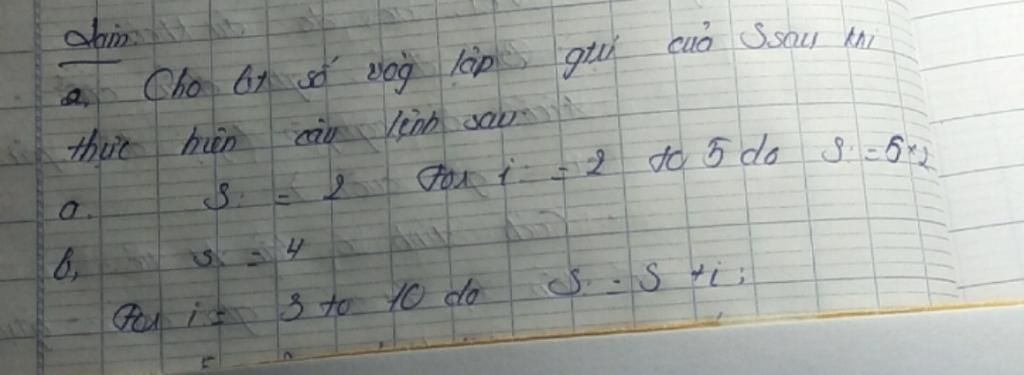 a, Cho bt số vòg lặp, gtrị của S sau khi
thực hiện câu lệnh sau:
a. S: = 2 For i: = 2 to 5 do S: = S*2
b, S: = 4
For i: = 3 to 10 do S: = S + i;